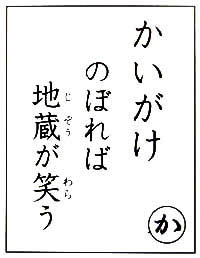 かいがけ
のぼれば
地蔵が笑う
じぞう
わら
か